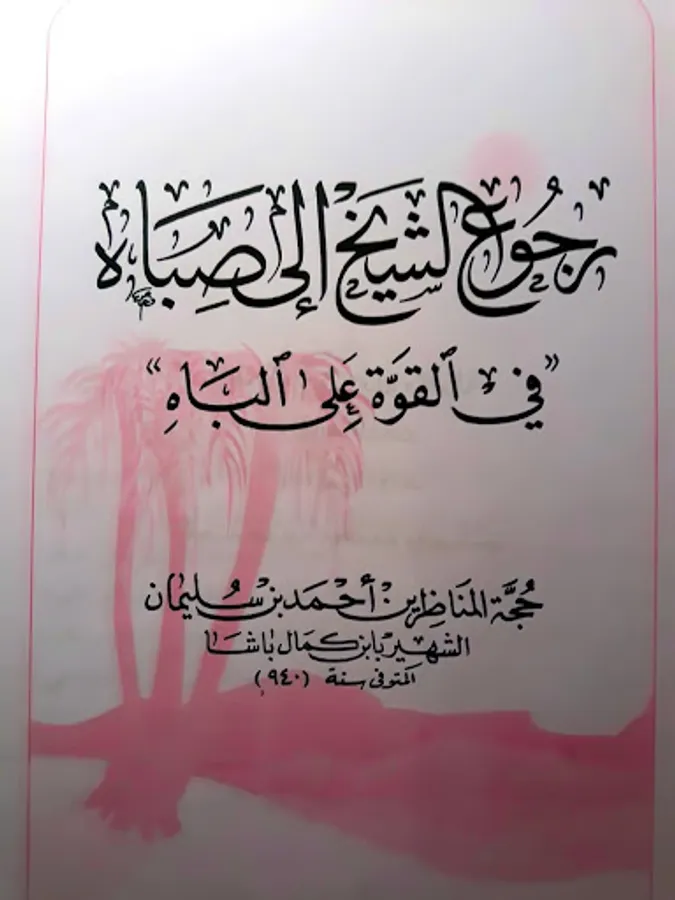 رجوع الشيخ إلى صباه
"في القوة على الباه"
حجة المناظرين أحمد بن سليمان
الشهير بابن كمال باشا
المتوفى سنة (٩٤٠)